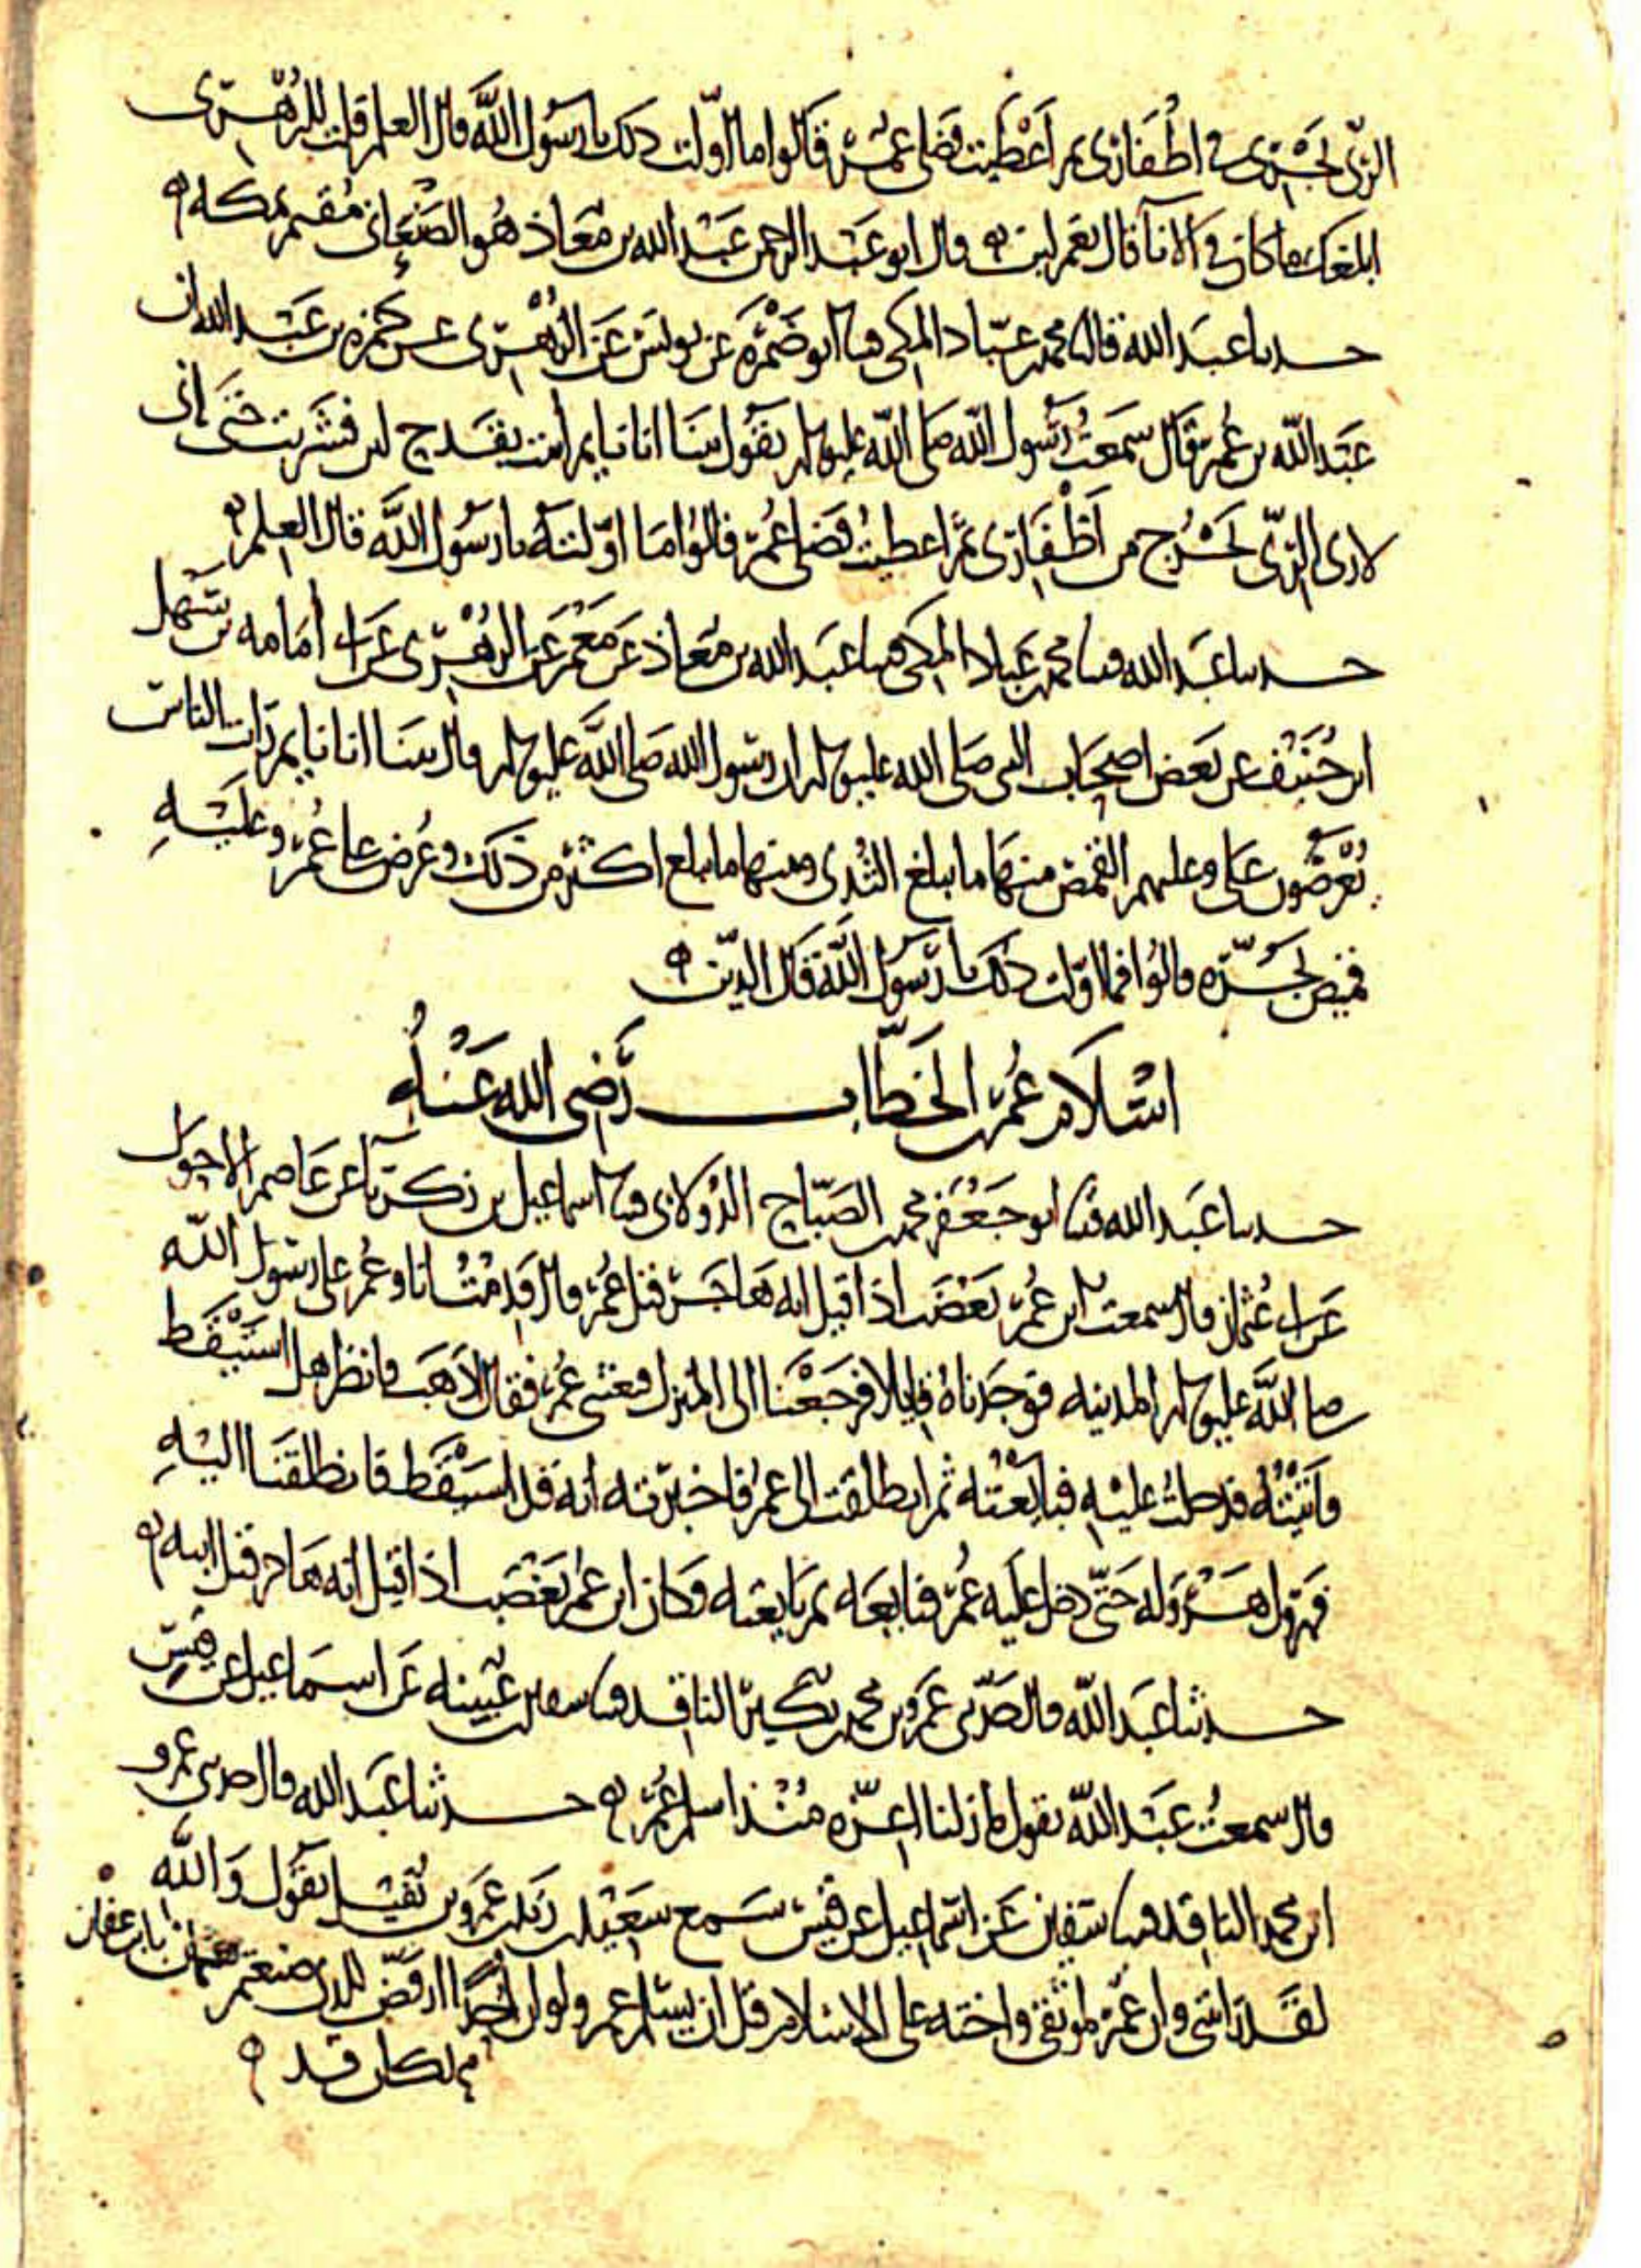 الرى يجرى في اظفارى ثم اعطيت فضلى عمر قالوا ما اولت ذلك يا رسول الله قال العلم قلت للزهرى
ابلغك ما كان في الانآ قال نعم لبن ه قال ابو عبد الرحمن عبد الله بن معاذ هو الصنعانى مقيم بمكه ه
حدثنا عبد الله قال محمد بن عباد المكى قثنا ابو ضمره عن يونس عن الزهرى عن حمزه بن عبد الله ان
عبد الله بن عمر قال سمعت رسول الله صلى الله عليه وسلم يقول بينا انا نايم اتيت بقدح لبن فشربت حتى انى
لارى الرى يخرج من اظفارى ثم اعطيت فضلى عمر قالوا ما اولته يا رسول الله قال العلم ه
حدثنا عبد الله قثنا محمد بن عباد المكى قثنا عبد الله بن معاذ عن معمر عن الزهرى عن ابى امامه بن سهل
ابن حنيف عن بعض اصحاب النبى صلى الله عليه وسلم ان رسول الله صلى الله عليه وسلم قال بينا انا نايم رات الناس
يعرضون على وعليهم القمص منها ما يبلغ الثدى ومنها ما يبلغ اكثر من ذلك وعرض على عمر وعليه
قميص يجره قالوا فما اولت ذلك يا رسول الله قال الدين ه
اسلام عمر بن الخطاب رضى الله عنه
حدثنا عبد الله قثنا ابو جعفر محمد بن الصباح الدولابى قثنا اسماعيل بن زكريآ عن عاصم الاحول
عن ابى عثمان قال سمعت ابن عمر يغضب اذا قيل انه هاجر قبل عمر قال قدمت انا وعمر على رسول الله
صلى الله عليه وسلم المدينه فوجدناه قايلا فرجعنا الى المنزل فبعثنى عمر فقال اذهب فانظر هل استيقظ
فاتيته فدخلت عليه فبايعته ثم انطلقت الى عمر فاخبرته انه قد استيقظ فانطلقنا اليه
فهرول هروله حتى دخل عليه عمر فبايعه ثم بايعته فكان ابن عمر يغضب اذا قيل انه هاجر قبل ابيه ه
حدثنا عبد الله قال حدثنى عمرو بن محمد بن بكير الناقد قثنا سفين بن عيينه عن اسماعيل عن قيس
قال سمعت عبد الله يقول ما زلنا اعزه منذ اسلم عمر ه حدثنا عبد الله قال حدثنى عمرو
ابن محمد الناقد قثنا سفين عن اسماعيل عن قيس سمع سعيد بن زيد بن عمرو بن نفيل يقول والله
لقد راتنى وان عمر لموثقى واخته على الاسلام قبل ان يسلم عمر ولو ان احدا ارفض للذى صنعتم بعثمان بن عفان
لكان قد ه